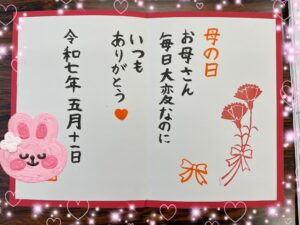 母の日
お母さん
毎日大変なのに
いつも
ありがとう
令和七年 五月十一日